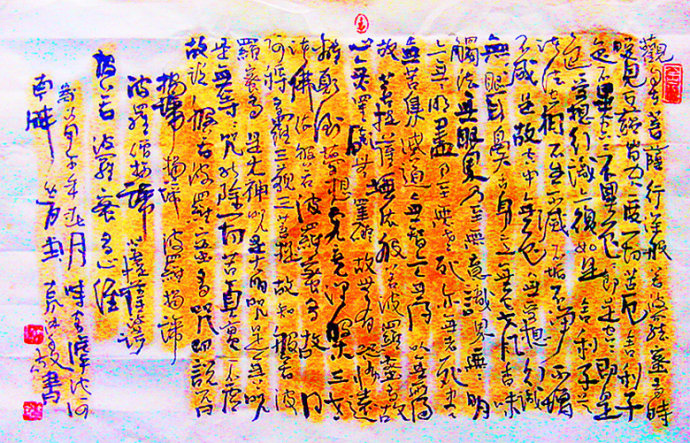 觀自在菩薩行深般若波羅蜜多時
照見五蘊皆空度一切苦厄舍利子
色不異空空不異色色即是空空即是
色受想行識亦復如是舍利子是
諸法空相不生不滅不垢不淨不增
不減是故空中無色無受想行識
無眼耳鼻舌身意無色聲香味
觸法無眼界乃至無意識界無無明
亦無無明盡乃至無老死亦無老死盡
無苦集滅道無智亦無得以無所得
故菩提薩埵依般若波羅蜜多故
心無罣礙無罣礙故無有恐怖遠
離顛倒夢想究竟涅槃三世
諸佛依般若波羅蜜多故得
阿耨多羅三藐三菩提故知般若波
羅蜜多是大神咒是大明咒是無上咒
是無等等咒能除一切苦真實不虛
故說般若波羅蜜多咒即說咒曰
揭諦揭諦波羅揭諦
波羅僧揭諦菩提薩婆訶
般若波羅蜜多心經
年月時
書